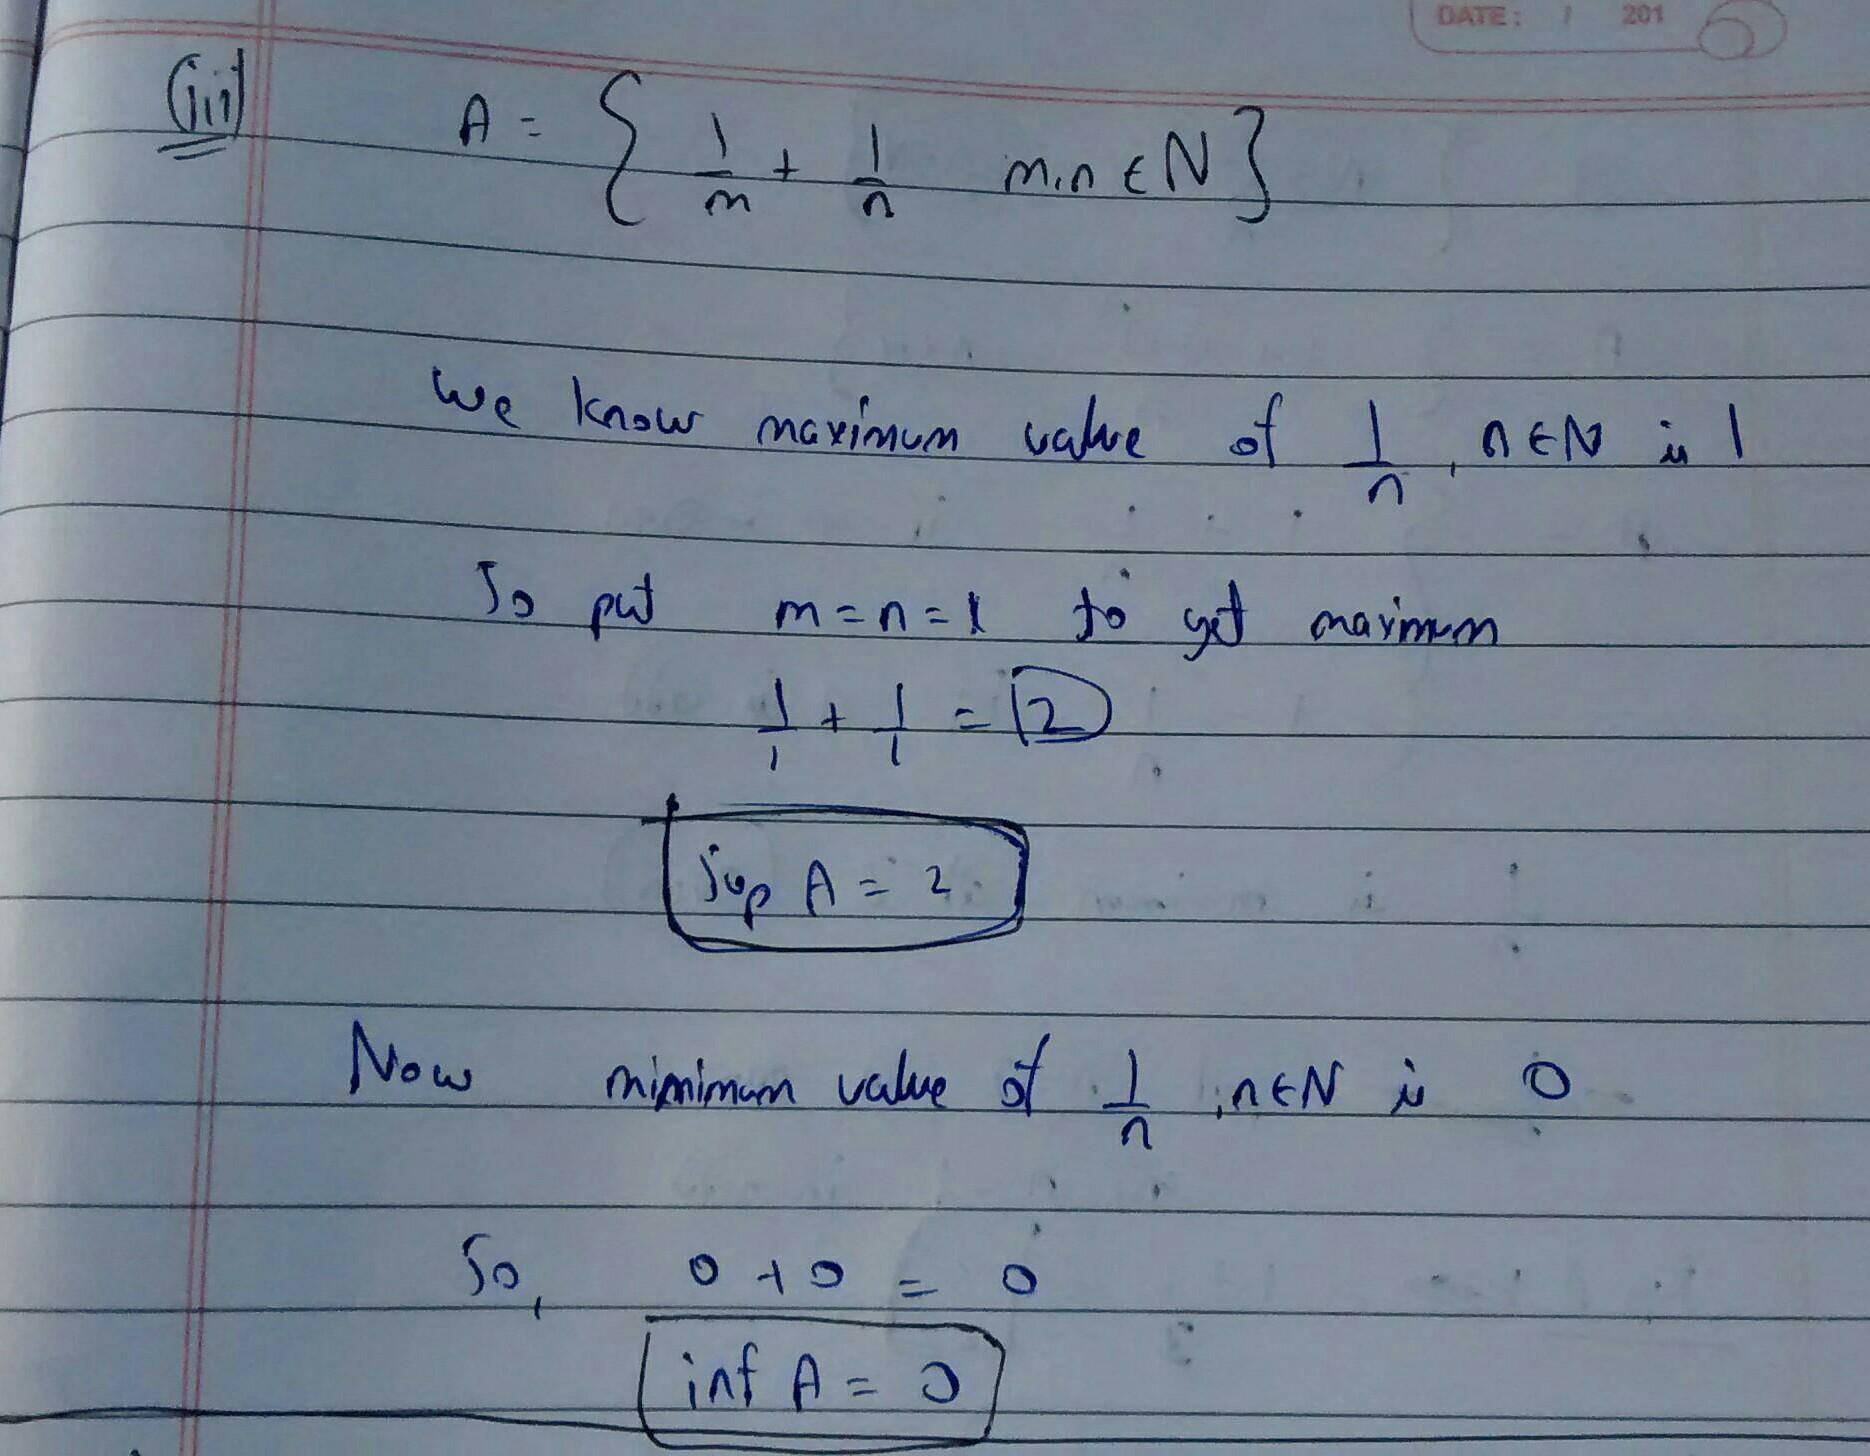 DATE: / 201
(iii) A = { 1/m + 1/n m,n ∈ N }
We know maximum value of 1/n , n ∈ N is 1
So put m = n = 1 to get maximum
1/1 + 1/1 = 2
Sup A = 2
Now minimum value of 1/n , n ∈ N is 0
So, 0 + 0 = 0
inf A = 0